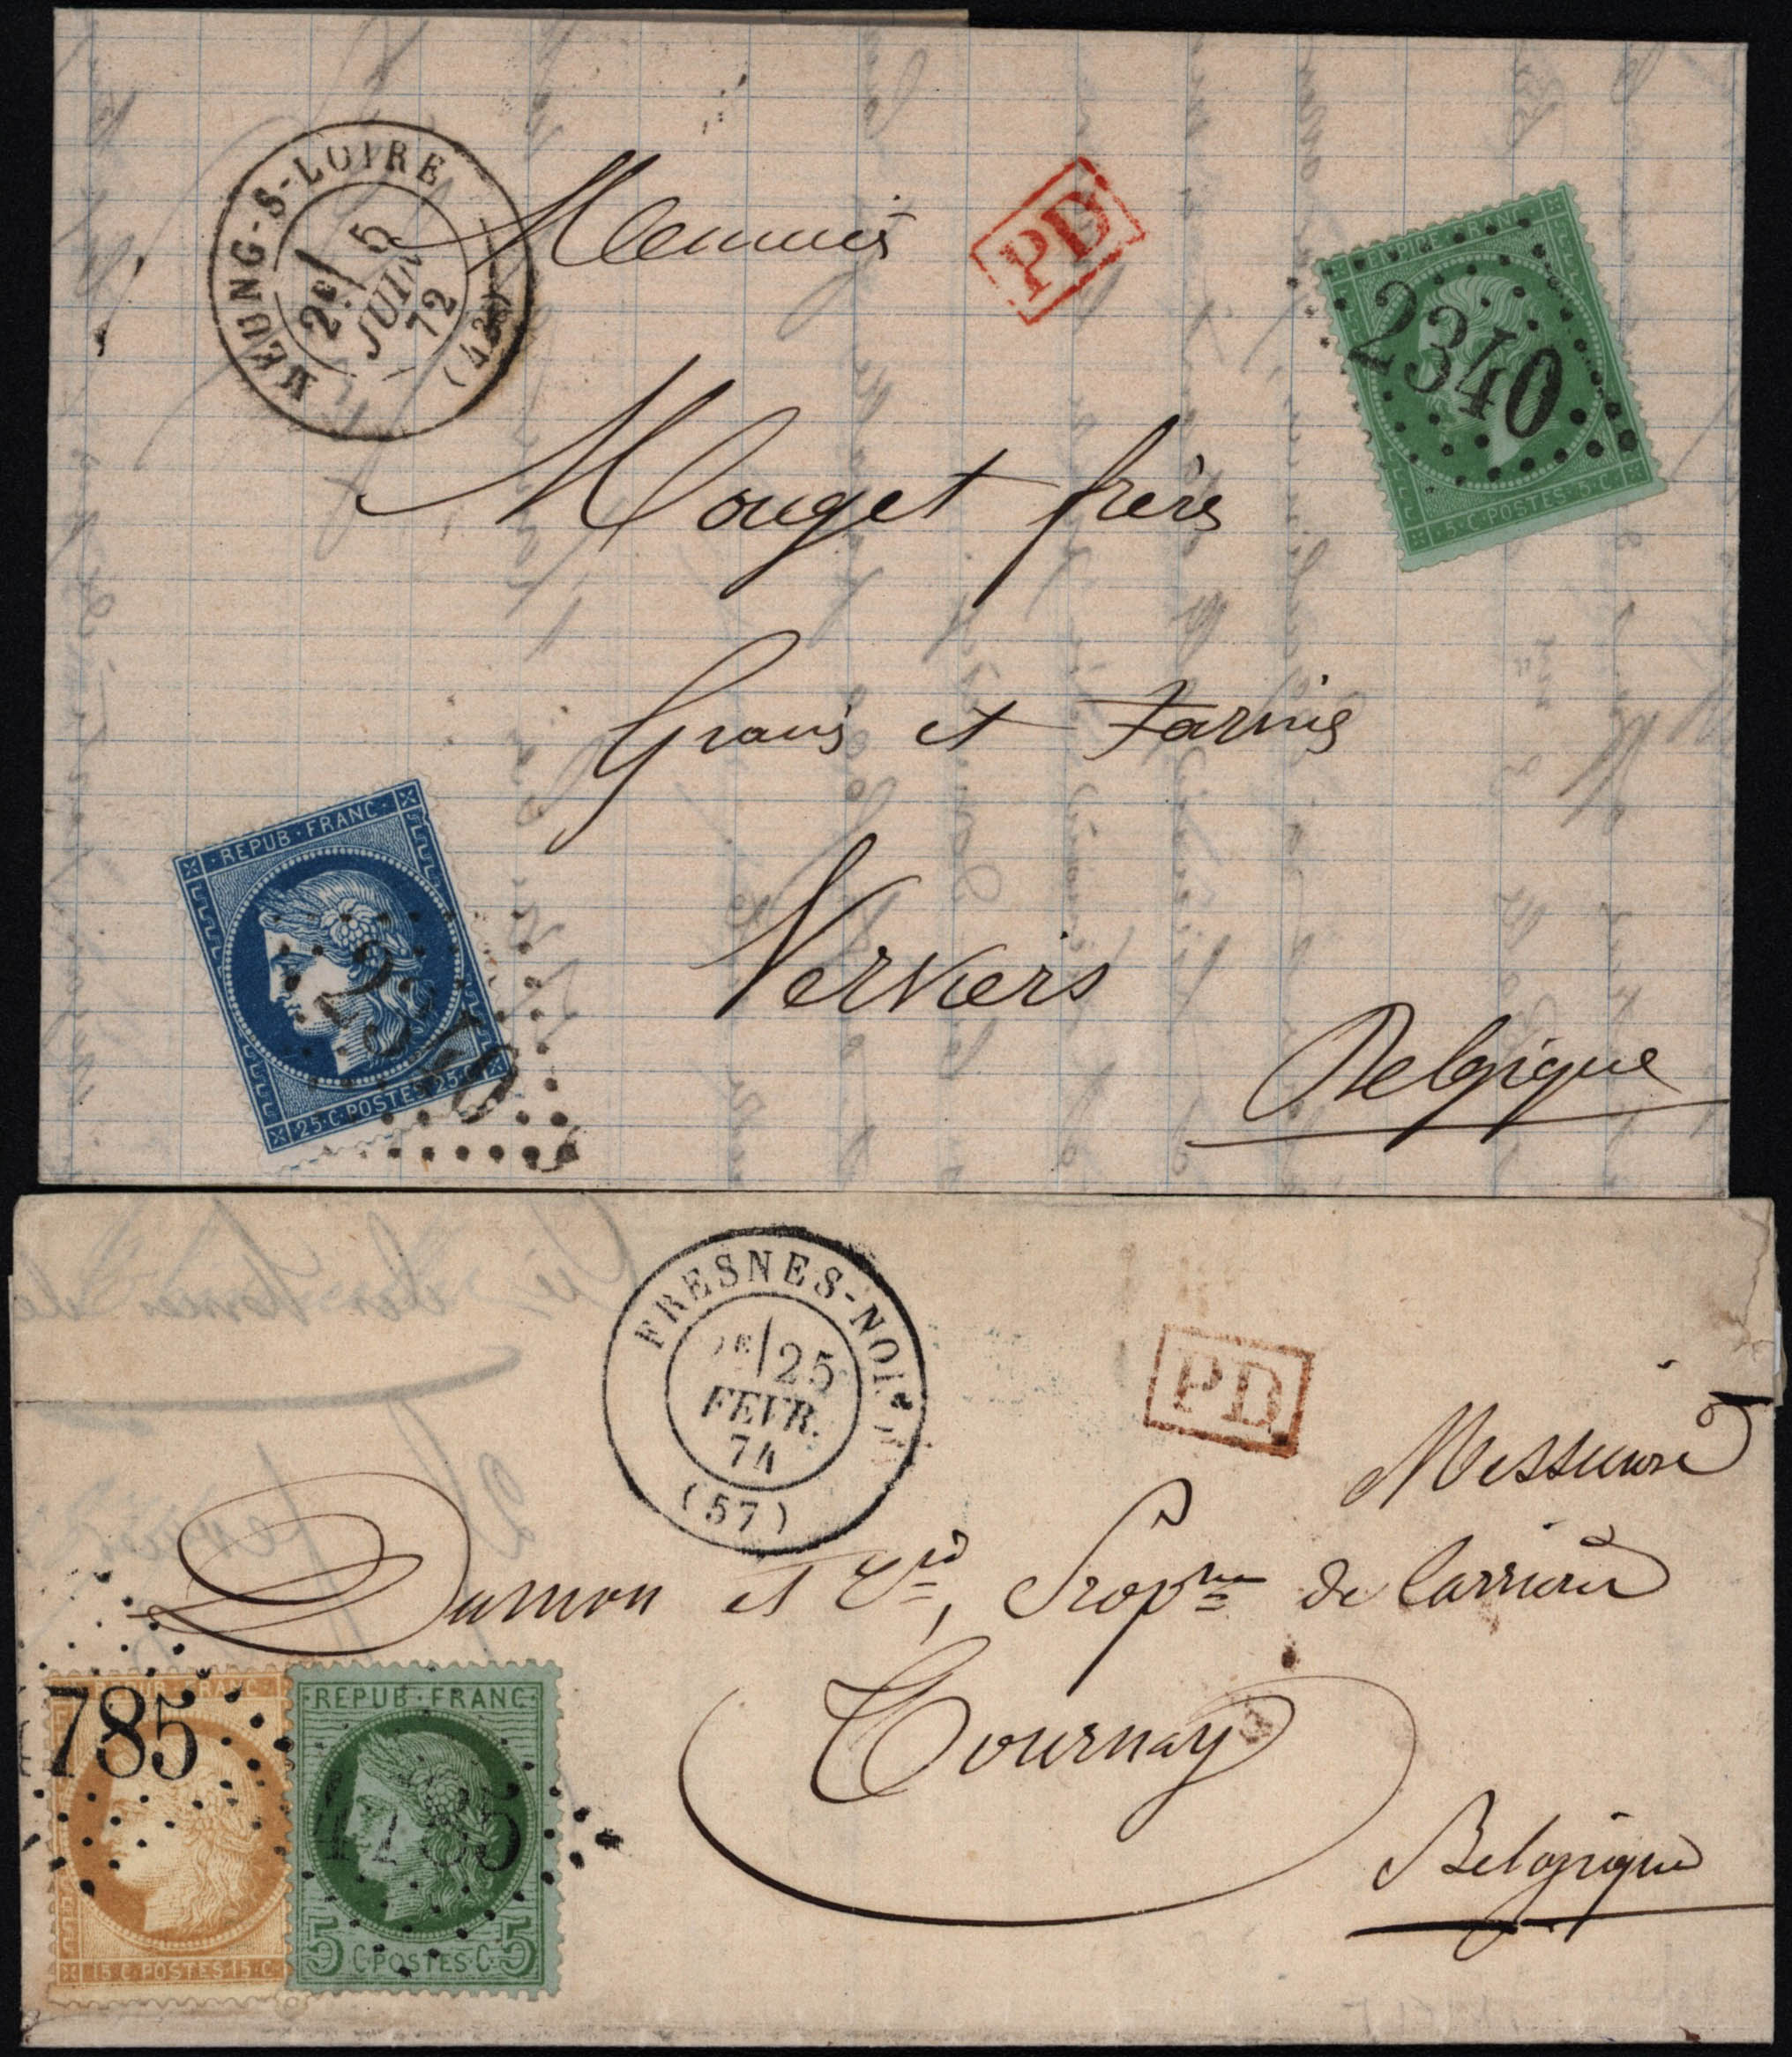 MEUNG-S-LOIRE
2E/ 5
JUIN
72
PD
EMPIRE FRANC
2340
5 C POSTES 5 C
Mouget frères
Grains et Farines
REPUB FRANC
2340
25 C POSTES 25 C
Verviers
Belgique
FRESNES-NOR
25
FEVR.
74
(57)
PD
Messieurs
Dumon et Cie, de Carrières
Tournay
Belgique
785
15 C POSTES 15 C
REPUB FRANC
5 C POSTES C 5